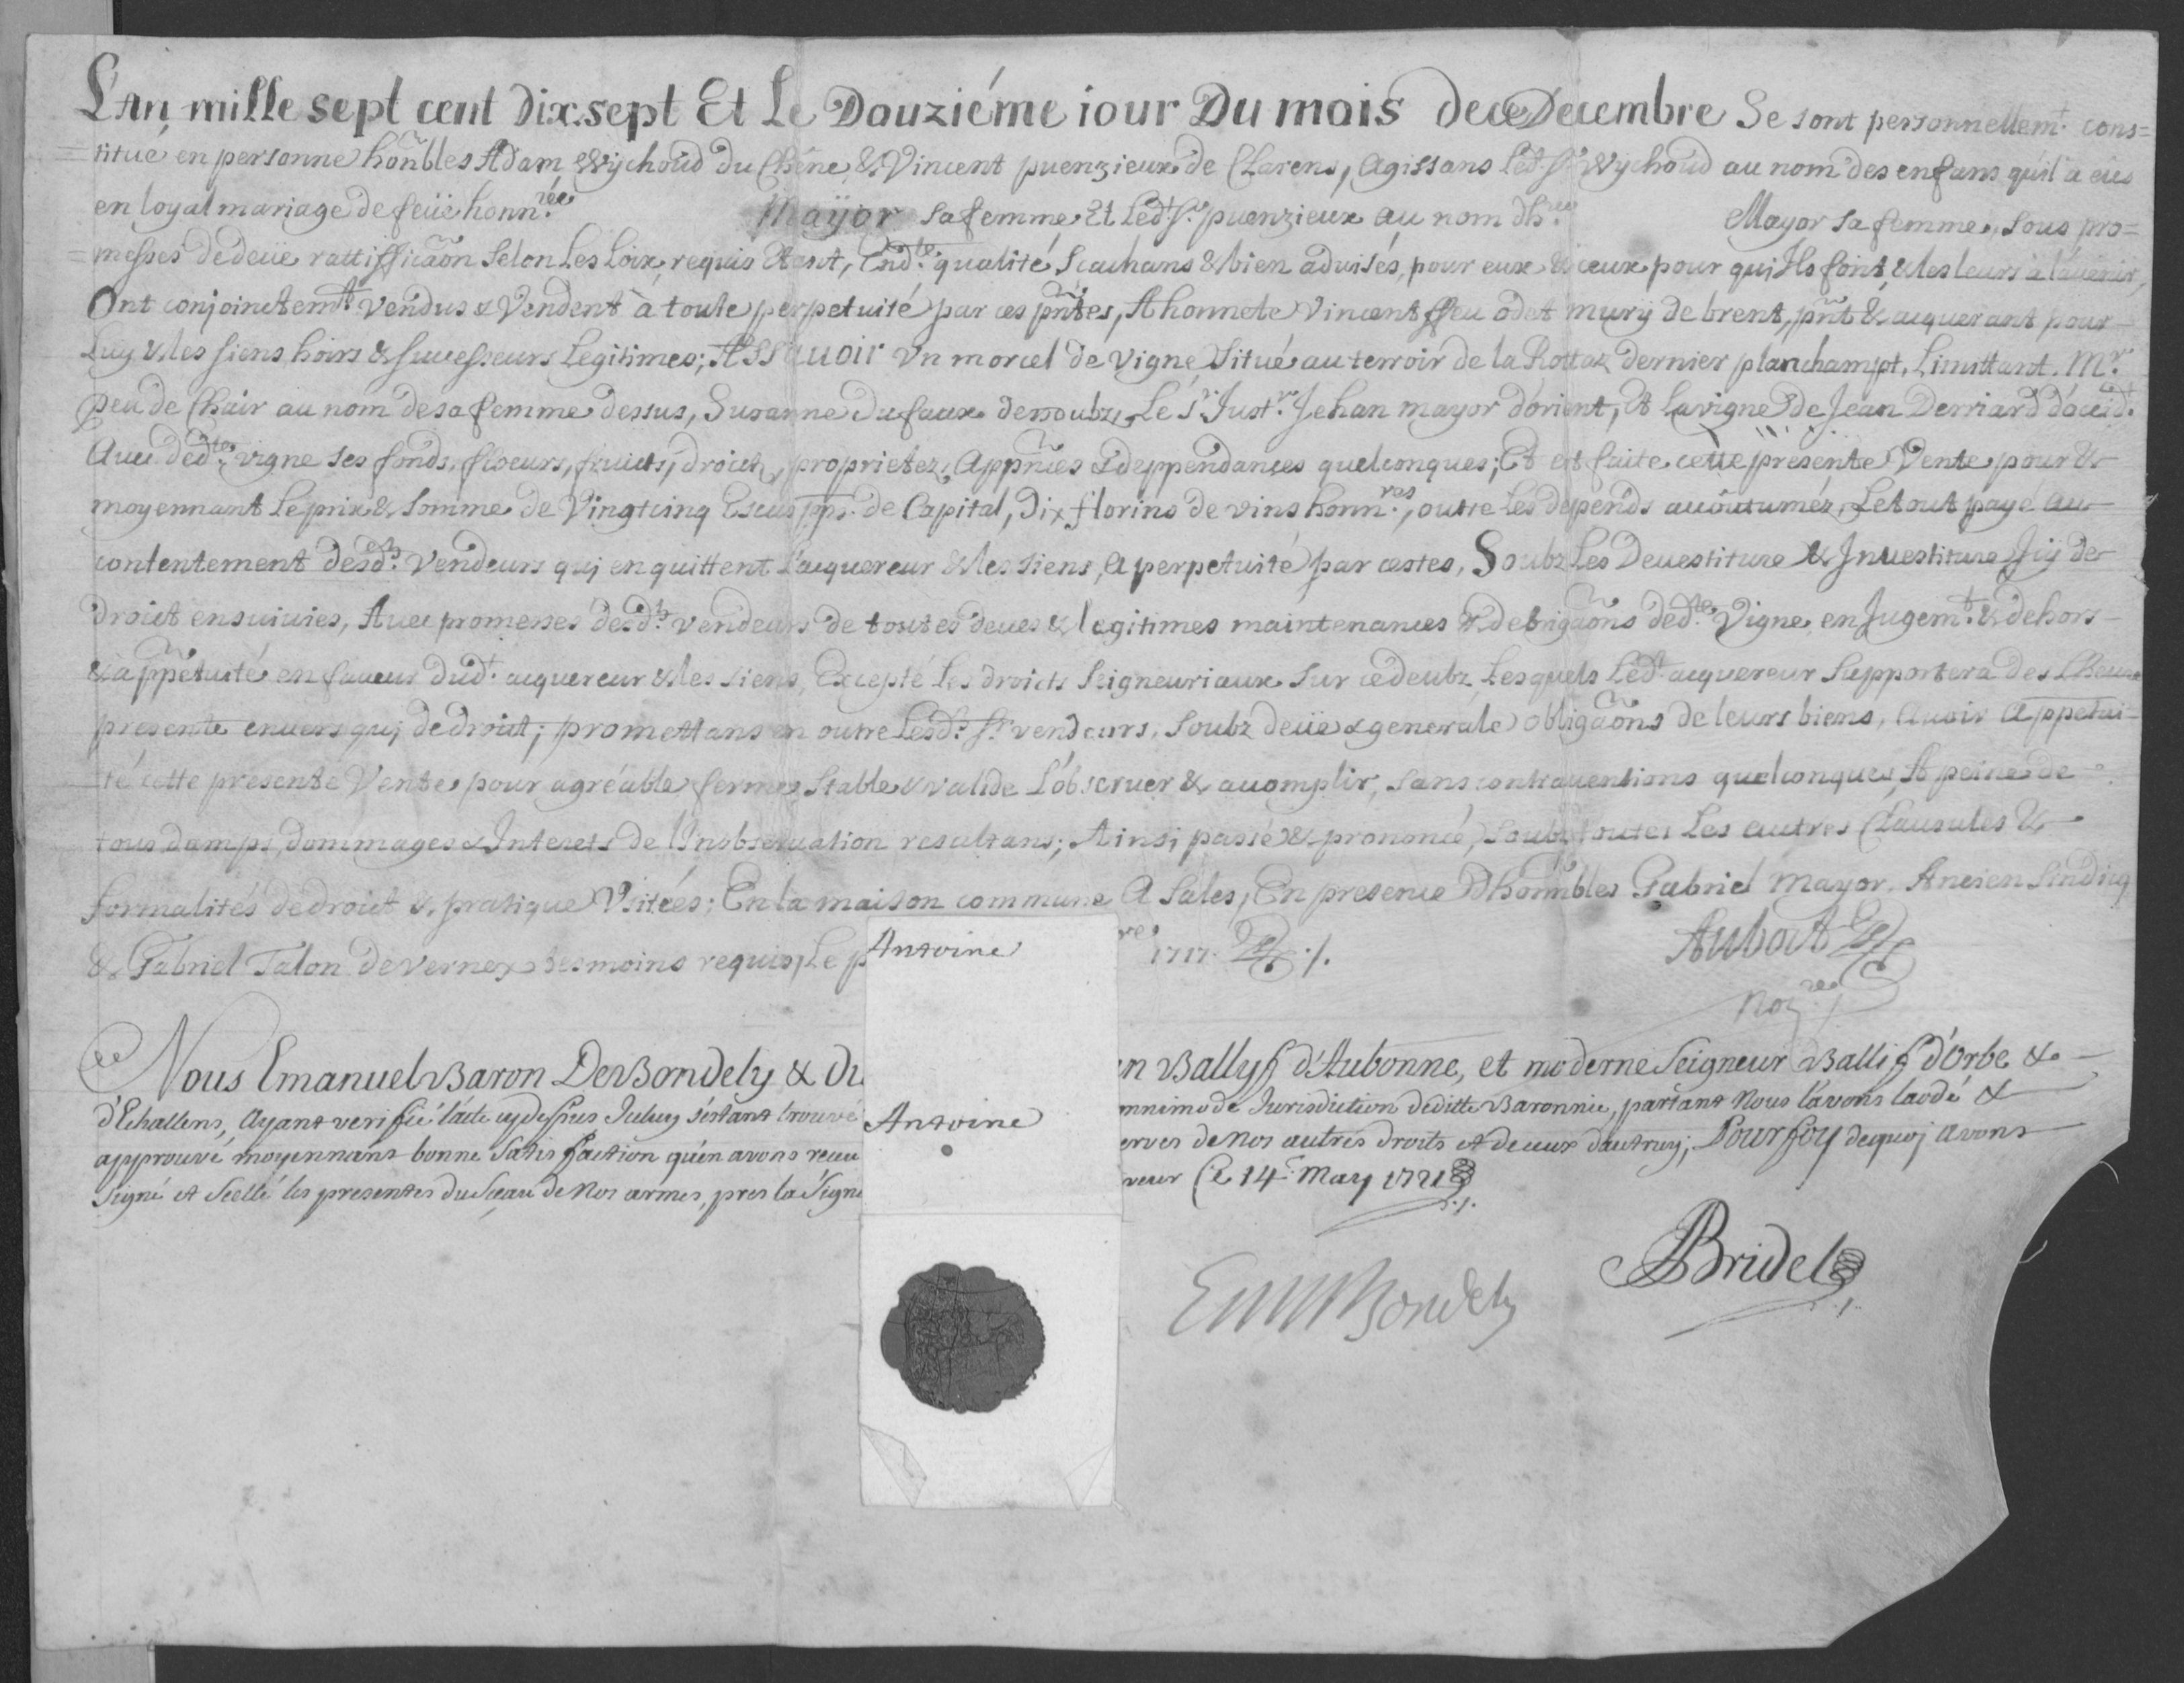 L'An mille sept cent Dix.sept Et Le Douziéme iour Du mois dece Decembre Se sont personnellem.t cons=
=titué en personne honnbles Adam Wychoud du Chéne & Vincent puenzieux de Clarens, agissans Led.t S.r Wychoud au nom des enfans qu'il a eüs
en loyal mariage de feüe honn.rée Maÿor sa femme, Et Led.t S.r puenzieux au nom dh.rée Mayor sa femme, sous pro=
=messes de deüe rattifficãon selon Les Loix, requis Estant, End.te qualité Scachans & bien aduisés, pour eux & ceux pour qui Ils font, & les leurs à l'auenir,
Ont conjoinctemt Vendus & Vendent à toute perpetuité par ces pñtes, A honnete Vincent ffeu odet mury de brent, pñt & acquerant pour
Luy & les siens, hoirs & successeurs Legitimes; Assauoir Vn morcel de Vigne Situé au terroir de la Rottaz dernier planchampt, Limittant. M.r
peu de Chair au nom de sa femme dessus, Susanne Dufaux dessoubz, Le S.r Just.er Jehan mayor d'orient, Et La vigne de Jean Derriard d'occid.t
Auec ded.te vigne ses fonds, floeurs, fruicts, droicts, proprietez, Appñces & deppendances quelconques; Et est faite cette presente Vente pour &
moyennant Le prix & somme de Vingtcinq Escus pps. de Capital, Dix florins de vins honn.res, outre les depends accoutumez, Le tout payé au
contentement desd.ts Vendeurs qui en quittent l'acquereur & les siens, a perpetuité par cestes, Soubz Les Deuestiture & Inuestiture Icy de
droict ensuiuies, Auec promesses desd.ts vendeurs de toutes deues & legitimes maintenances & debrigãons ded.te Vigne, en Jugem.t & dehors
& a ppétuité en faueur dud.t acquereur & les siens, Excepté les droicts Seigneuriaux sur icedeubz, Lesquels Led.t acquereur Supportera des L'heure
presente enuers qui de droict; promettans en outre Lesd.ts S.rs vendeurs, Soubz deüe & generale obligãons de leurs biens, auoir a ppetui-
té cette presente Vente pour agréable ferme, stable & valide L'obseruer & accomplir, sans contrauentions quelconques, A peine de
tous damps, dommages & Interets de l'Inobseruation resultans; Ainsi passé & prononcé, soubz toutes Les autres Clausules &
formalités de droict & pratique Vsitées; En la maison commune A Sales, En presence d'honnbles Gabriel Mayor. Ancien Sindicq
& Gabriel Talon de Vernex tesmoins requis, Le p Antoine re 1717. Aubort
No.re
Nous Emanuel Baron De Bondely & Du en Ballyf d'Aubonne, et moderne Seigneur Ballif d'Orbe &
d'Echallens, Ayant verifié l'acte cy dessus Iceluy s'estant trouvé Antoine mnimode Jurisdiction de ditte Baronnie, partant Nous l'avons laodé &
approuvé moyennans bonne Satisfaction qu'en avons receu erves de Nos autres droits et de ceux d'autruy; Pour foy dequoj avons
Signé et Scellé les presentes du Sceau de Nos armes, pres la Signe veur Ce 14.e May 1721
Em Bondely ABridel